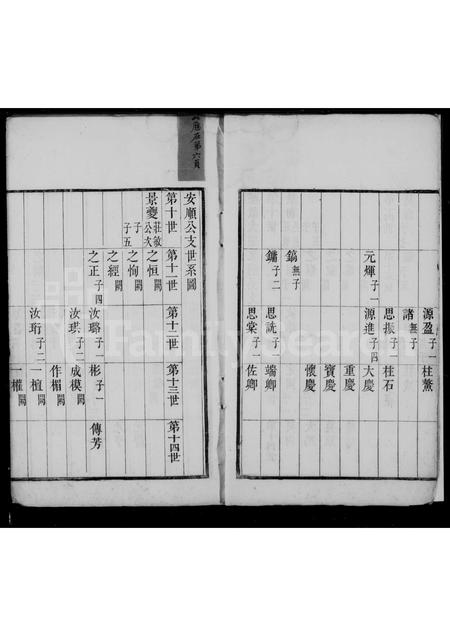 源盈子一 柱鰲
諸無子
思振子一 柱石
元煇子一 源進子四 大慶
重慶
寶慶
懷慶
鎬無子
鏞子二 思詵子一 端卿
思棠子一 佐卿
安順公支世系圖
第十世 第十一世 第十二世 第十三世 第十四世
景夔莊敏公次子五 之恒闕
之恂闕
之經闕
之正子四 汝璐子一 彬子一 傳芳
汝琪子二 成模闕
作楣闕
汝珩子二 一楦闕
一權闕
FamilySearch